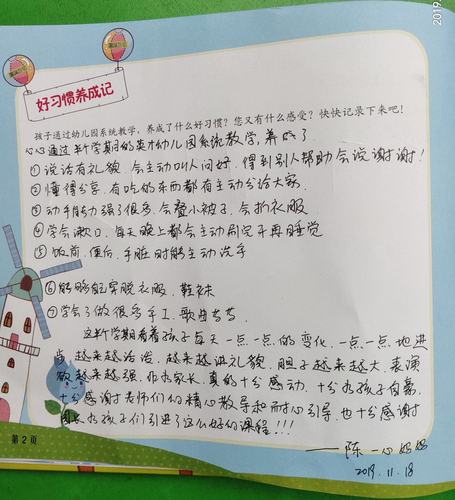 2019.
好习惯养成记
孩子通过幼儿园系统教学,养成了什么好习惯?您又有什么感受?快快记录下来吧!
心心通过半学期的英才幼儿园系统教学,养成了
①说话有礼貌,会主动叫人问好,得到别人帮助会说谢谢!
②懂得分享,有吃的东西都有主动分给大家.
③动手能力强了很多,会叠小被子,会折衣服
④学会漱口,每天晚上都会主动刷完牙再睡觉
⑤饭前,便后,手脏时能主动洗手
⑥能够自己穿脱衣服,鞋袜
⑦学会了做很多手工,歌曲
这半学期看着孩子每天一点一点的变化,一点一点地进
步,越来越活泼,越来越讲礼貌,胆子越来越大,表演
欲越来越强.作为家长,真的十分感动,十分为孩子自豪.
十分感谢老师们的精心教导和耐心引导,也十分感谢
园长为孩子们引进了这么好的课程!!!
——陈一心妈妈
2019.11.18
第2页